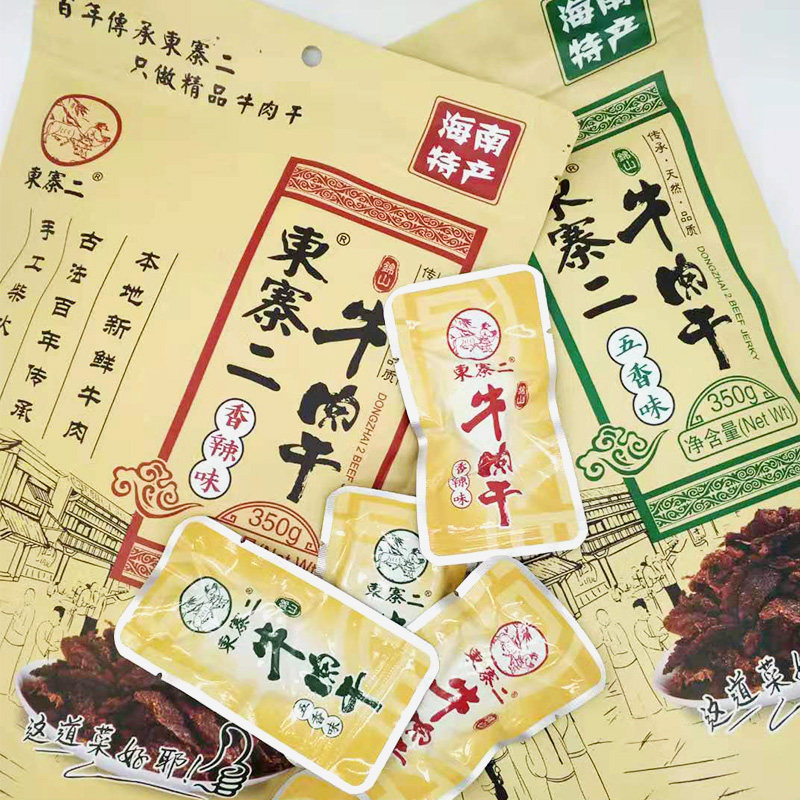 百年傳承東寨二
只做精品牛肉干
東寨二®
海南
特产
本地新鲜牛肉
古法百年传承
手工柴火
東寨二®
錦山
牛肉干
DONGZHAI 2 BEEF
香辣味
350g
这道菜好耶!
海南
特产
传承·天然·品质
錦山
東寨二
牛肉干
DONGZHAI 2 BEEF JERKY
五香味
350g
净含量(Net Wt)
这道菜
東寨二®
錦山
牛肉干
香辣味
東寨二
東寨二®
錦山
牛肉干
五香味
東寨二®
牛肉